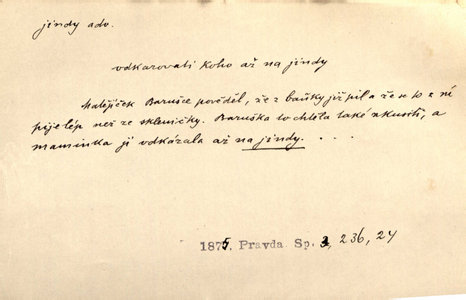 jindy adv.
odkazovati koho až na jindy
Matějíček Barušce pověděl, že z baňky již pil a že se to z ní
pije lép než ze skleničky. Baruška to chtěla také zkusiti, a
maminka ji odkázala až na jindy. . . .
1875. Pravda. Sp. 3, 236, 24